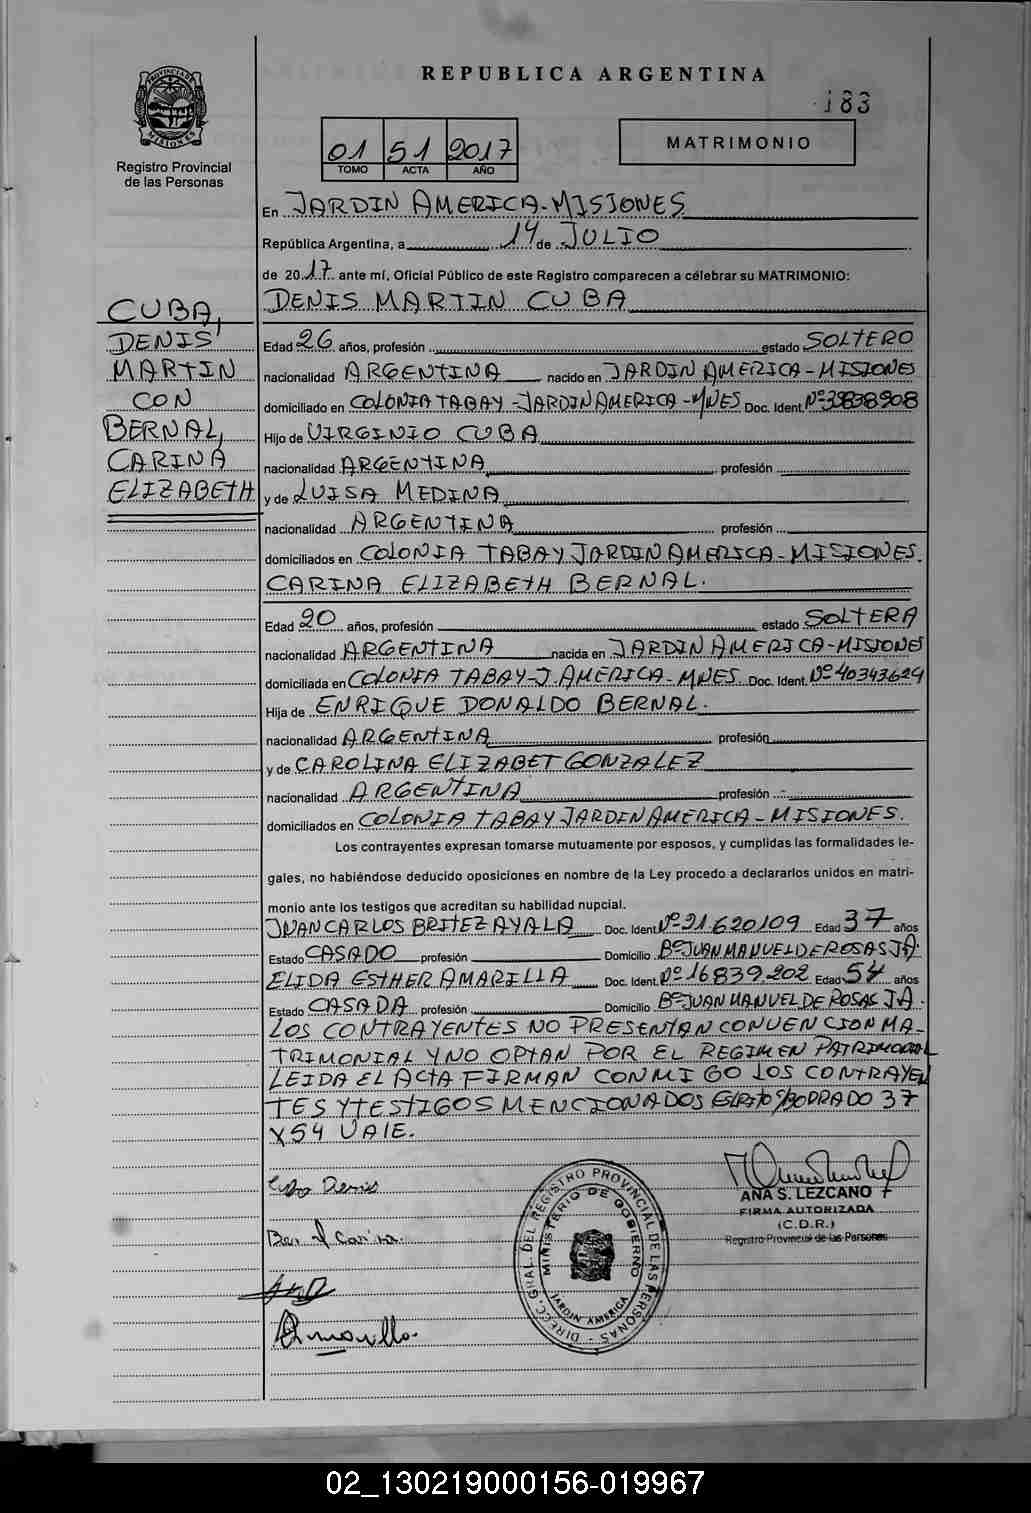 REPUBLICA ARGENTINA
183
PROVINCIA DE MISIONES
Registro Provincial
de las Personas
01 51 2017
TOMO ACTA AÑO
MATRIMONIO
En JARDIN AMERICA-MISIONES
República Argentina, a 14 de JULIO
de 2017 ante mí, Oficial Público de este Registro comparecen a celebrar su MATRIMONIO:
DENIS MARTIN CUBA
CUBA,
DENIS
MARTIN
CON
BERNAL,
CARINA
ELIZABETH
Edad 26 años, profesión estado SOLTERO
nacionalidad ARGENTINA nacido en JARDIN AMERICA-MISIONES
domiciliado en COLONIA TABAY-JARDIN AMERICA-MNES Doc. Ident. Nº
Hijo de VIRGINIO CUBA
nacionalidad ARGENTINA profesión
y de LUISA MEDINA
nacionalidad ARGENTINA profesión
domiciliados en COLONIA TABAY JARDIN AMERICA-MISIONES.
CARINA ELIZABETH BERNAL.
Edad 20 años, profesión estado SOLTERA
nacionalidad ARGENTINA nacida en JARDIN AMERICA-MISIONES
domiciliada en COLONIA TABAY-J.AMERICA-MNES Doc. Ident. Nº 40343624
Hija de ENRIQUE DONALDO BERNAL.
nacionalidad ARGENTINA profesión
y de CAROLINA ELIZABET GONZALEZ
nacionalidad ARGENTINA profesión
domiciliados en COLONIA TABAY JARDIN AMERICA-MISIONES.
Los contrayentes expresan tomarse mutuamente por esposos, y cumplidas las formalidades le-
gales, no habiéndose deducido oposiciones en nombre de la Ley procedo a declararlos unidos en matri-
monio ante los testigos que acreditan su habilidad nupcial.
JUAN CARLOS BRITEZ AYALA Doc. Ident Nº 21.620109 Edad 37 años
Estado CASADO profesión Domicilio Bº JUAN MANUEL DE ROSAS J A.
ELIDA ESTHER AMARILLA Doc. Ident. Nº 16839.202 Edad 54 años
Estado CASADA profesión Domicilio Bº JUAN MANUEL DE ROSAS J A.
LOS CONTRAYENTES NO PRESENTAN CONVENCION MA-
TRIMONIAL Y NO OPTAN POR EL REGIMEN PATRIMONIAL
LEIDA EL ACTA FIRMAN CONMIGO LOS CONTRAYEN
TES Y TESTIGOS MENCIONADOS 37
Y 54 VALE.
Cuba Denis
Carina
Amarilla
DIRECC. GRAL. DEL REGISTRO PROVINCIAL DE LAS PERSONAS
MINISTERIO DE GOBIERNO
JARDIN AMERICA
ANA S. LEZCANO
FIRMA AUTORIZADA
(C.D.R.)
Registro Provincial de las Personas
02_130219000156-019967